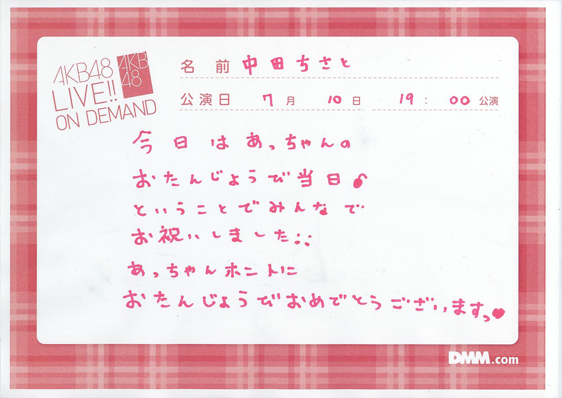 AKB48
LIVE!!
ON DEMAND
AKB
48
名前 中田ちさと
公演日 7月 10日 19:00公演
今日はあっちゃんの
おたんじょうび当日♪
ということでみんなで
お祝いしました!!
あっちゃんホントに
おたんじょうびおめでとうございますっ♥
DMM.com